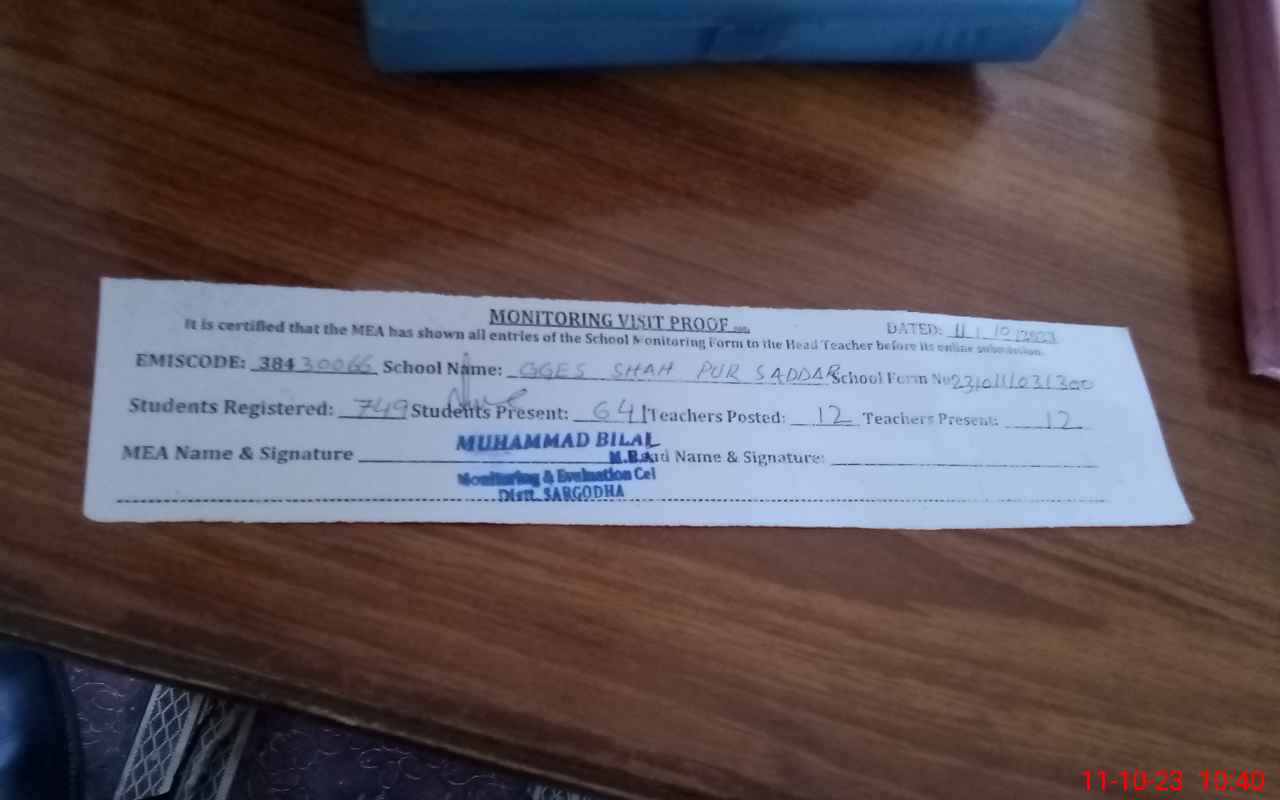 MONITORING VISIT PROOF
DATED: 11/10/2023
It is certified that the MEA has shown all entries of the School Monitoring Form to the Head Teacher before its online submission.
EMISCODE: 38430066 School Name: GGES SHAH PUR SADDAR School Form No 231011031300
Students Registered: 749 Students Present: 641 Teachers Posted: 12 Teachers Present: 12
MUHAMMAD BILAL
MEA Name & Signature M.E.A Name & Signature:
Monitoring & Evaluation Cel
Distt. SARGODHA
11-10-23 10:40